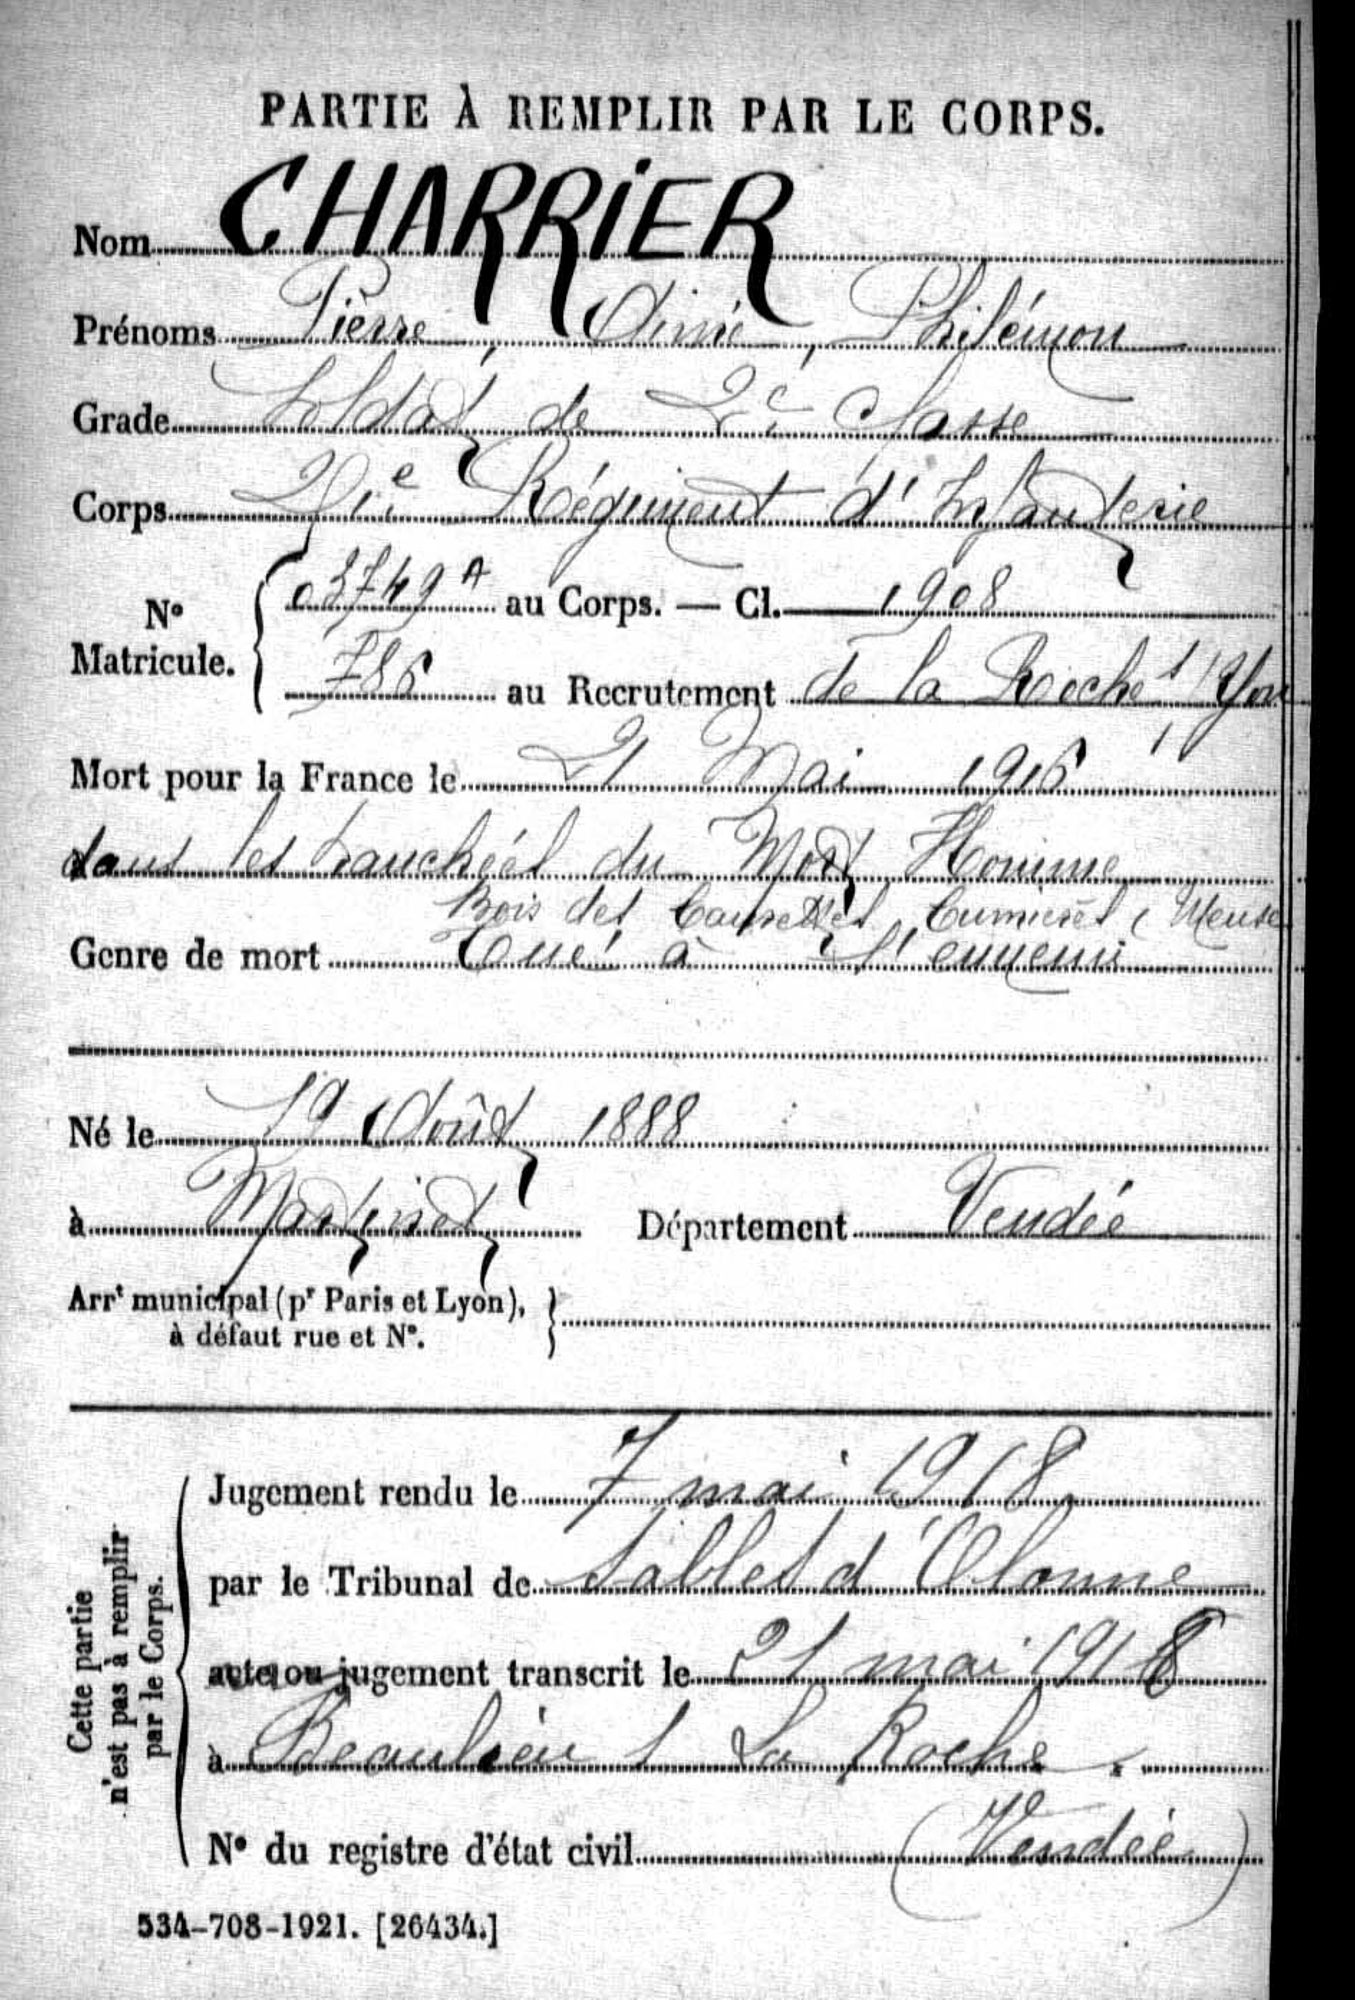 PARTIE À REMPLIR PAR LE CORPS.
Nom CHARRIER
Prénoms Pierre, Aimé, Philémon
Grade Soldat de 2e classe
Corps 91e Régiment d'Infanterie
No Matricule. { 03749 A au Corps. — Cl. 1908
786 au Recrutement de la Roche s/ Yon
Mort pour la France le 21 Mai 1916
dans les tranchées du Mort Homme
Bois des Caurettes, Cumières, Meuse
Genre de mort Tué à l'ennemi
Né le 19 Août 1888
à Martinet Département Vendée
Arrt municipal (pr Paris et Lyon), }
à défaut rue et No.
Cette partie
n'est pas à remplir
par le Corps.
Jugement rendu le 7 mai 1918
par le Tribunal de Sables d'Olonne
acte ou jugement transcrit le 21 mai 1918
à Beaulieu s La Roche.
No du registre d'état civil (Vendée)
534-708-1921. [26434.]